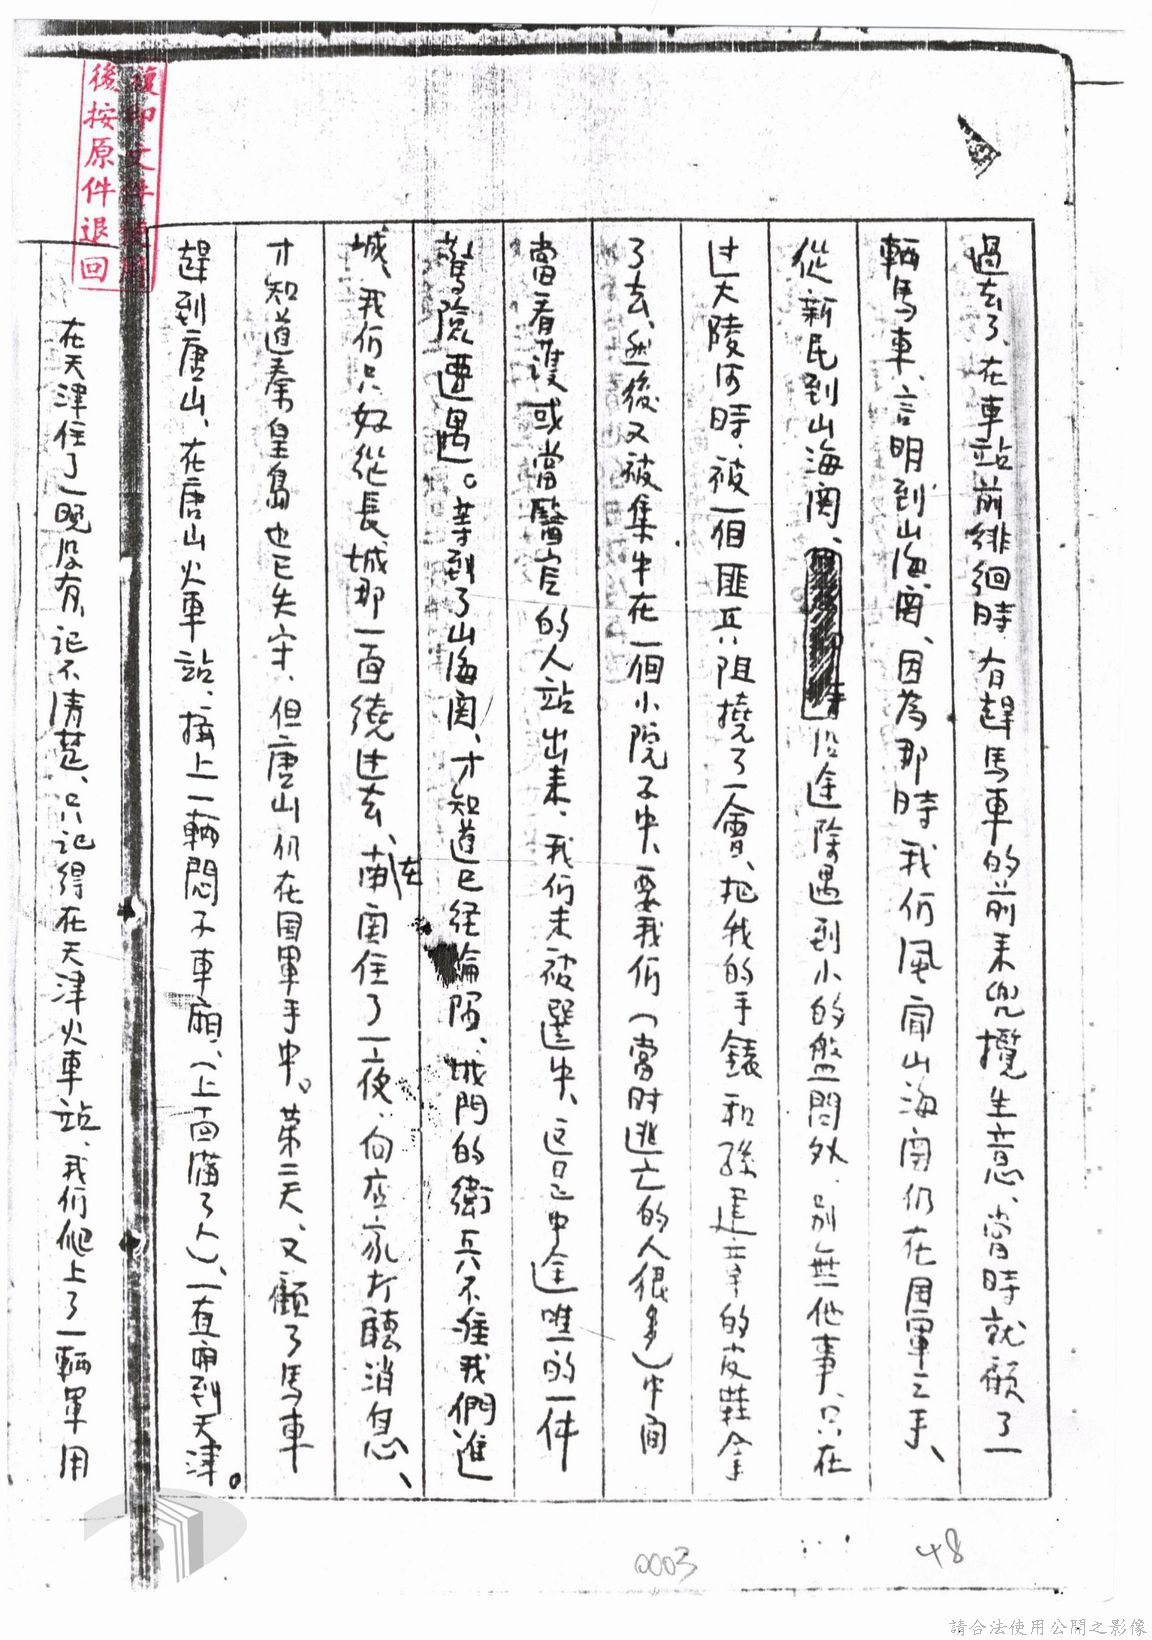 過去了、在車站前徘徊時有趕馬車的前來兜攬生意、當時就顧了一
輛馬車、言明到山海関、因為那時我们風聞山海関仍在国軍之手、
從新民到山海関、沿途除遇到小的盤問外、別無他事、只在
过大陵河時、被一個匪兵阻撓了一會、把我的手錶和孫建章的皮鞋拿
了去、然後又被集中在一個小院子中、要我们(當时逃亡的人很多)中间
當看護或當醫官的人站出来、我们未被選中、這是中途唯一的一件
驚險遭遇。等到了山海関、才知道已経淪陷、城門的衛兵不准我們進
城、我们只好從長城那一面繞过去、在南関住了一夜、向店家打聽消息、
才知道秦皇島也已失守、但唐山仍在国軍手中。第二天、又顧了馬車
趕到唐山、在唐山火車站、擠上一輛悶子車廂、(上面滿了人)、一直開到天津。
在天津住了一晚没有、記不清楚、只記得在天津火車站、我们爬上了一輛軍用
複印文件使用
後按原件退回
0003
48
請合法使用公開之影像